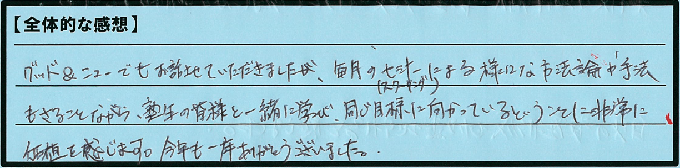 【全体的な感想】
グッド&ニューでもお話させていただきましたが、毎月のセミナーによる様々な方法論や手法
(スクーリング)
もさることながら、塾生の皆様と一緒に学び、同じ目標に向かっているということに非常に
価値を感じます。今年も一年ありがとうございました。